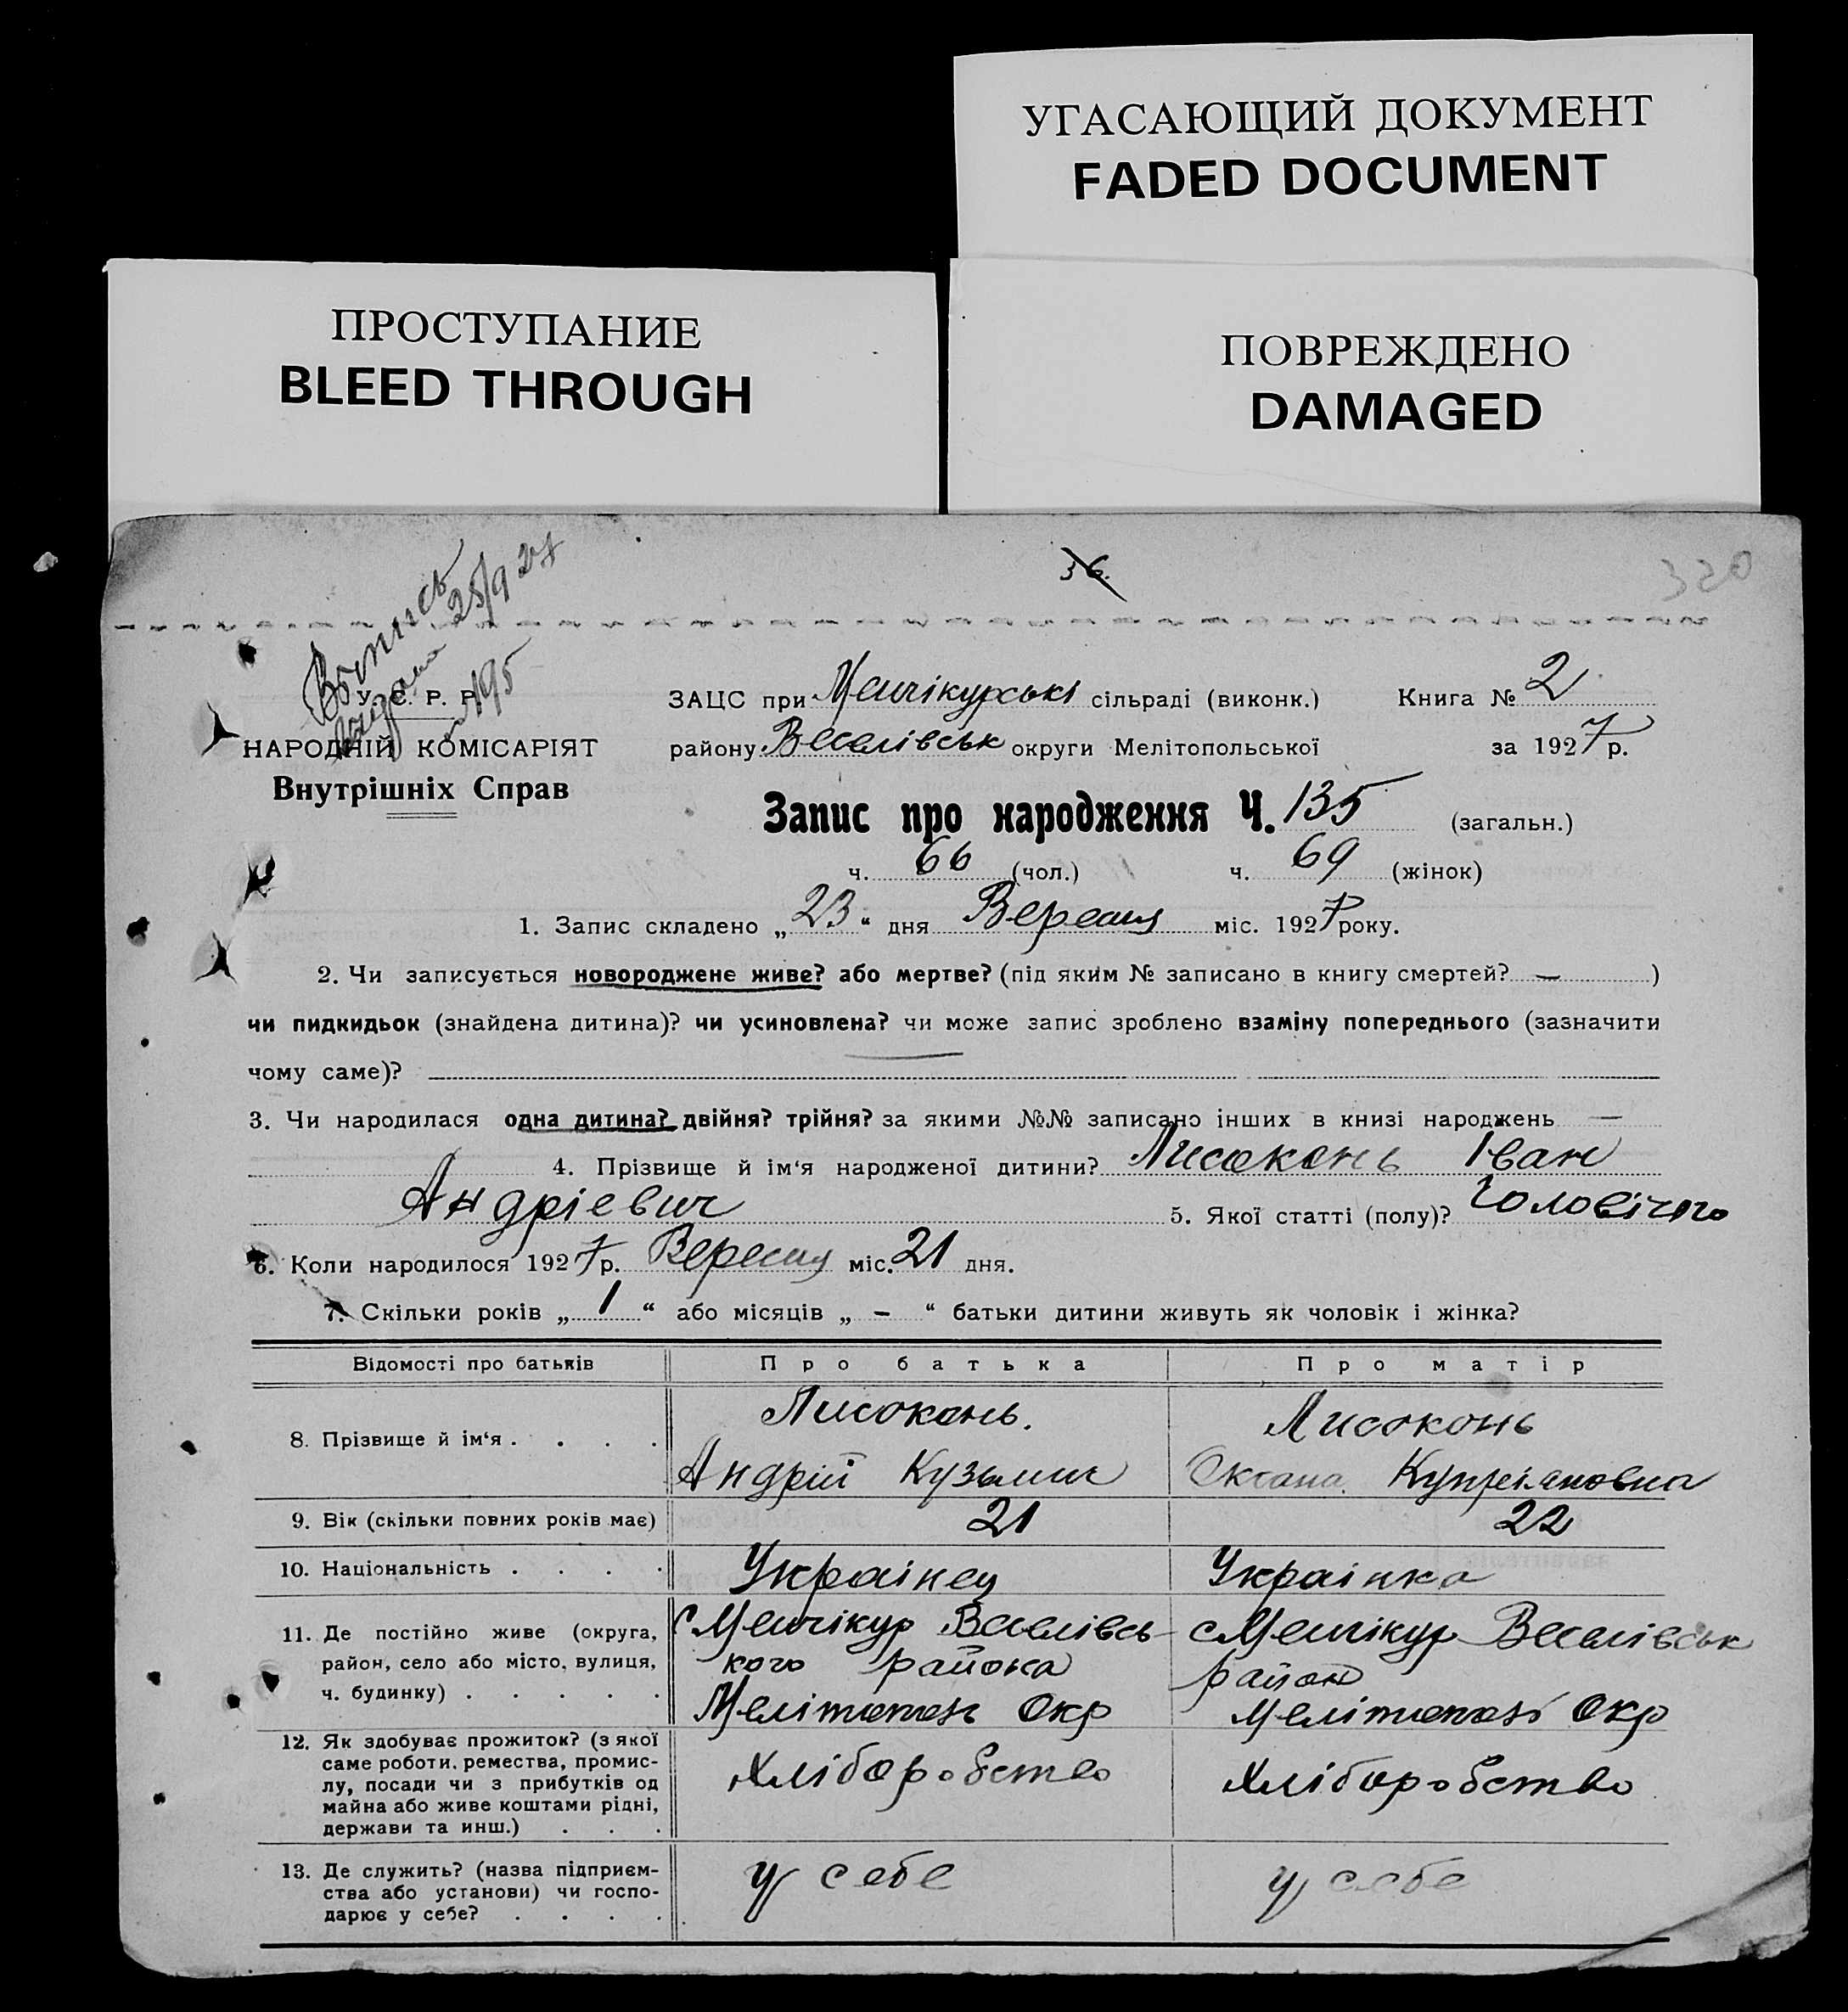 УГАСАЮЩИЙ ДОКУМЕНТ
FADED DOCUMENT
ПРОСТУПАНИЕ
BLEED THROUGH
ПОВРЕЖДЕНО
DAMAGED
36.
320
Вьпись
видана 25/9 27
№ 195
У. С. Р. Р.
НАРОДНІЙ КОМІСАРІЯТ
Внутрішніх Справ
ЗАЦС при Менчікурські сільраді (виконк.) Книга № 2
району Веселівськ округи Мелітопольської за 1927 р.
Запис про народження Ч. 135 (загальн.)
ч. 66 (чол.) ч. 69 (жінок)
1. Запис складено „ 23 “ дня Вересня міс. 1927 року.
2. Чи записується новороджене живе? або мертве? (під яким № записано в книгу смертей? — )
чи пидкидьок (знайдена дитина)? чи усиновлена? чи може запис зроблено взаміну попереднього (зазначити
чому саме)?
3. Чи народилася одна дитина? двійня? трійня? за якими №№ записано інших в книзі народжень —
4. Прізвище й ім‘я народженої дитини? Лисоконь Іван
Андріевич 5. Якої статті (полу)? Чоловічого
6. Коли народилося 1927 р. Вересня міс. 21 дня.
7. Скільки років „ 1 “ або місяців „ – “ батьки дитини живуть як чоловік і жінка?
Відомості про батьків Про батька Про матір
8. Прізвище й ім‘я . . . . Лисоконь. Андрій Кузьмич Лисоконь Оксана Купріяновна
9. Вік (скільки повних років має) 21 22
10. Національність . . . . Украінец Украінка
11. Де постійно живе (округа,
район, село або місто, вулиця,
ч. будинку) . . . . .
с Менчікур Веселівсь-
кого района
Мелітопозь Окр
с Менчікур Веселівськ
район
Мелітопозь Окр
12. Як здобуває прожиток? (з якої
саме роботи, ремества, промис-
лу, посади чи з прибутків од
майна або живе коштами рідні,
держави та инш.) . . .
Хліборобство Хліборобство
13. Де служить? (назва підприєм-
ства або установи) чи госпо-
дарює у себе? . . . .
у себе у себе